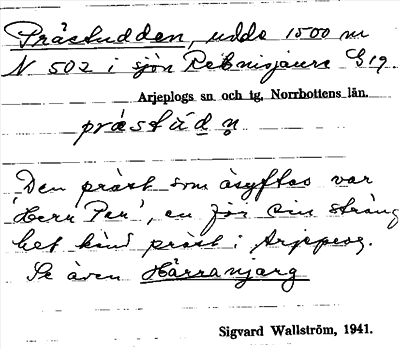 Prästudden, udde 1500 m
N 502 i sjön Rebnisjaure G 19.
Arjeplogs sn och tg, Norrbottens län.
præstúd ṇ
Den präst som åsyftas var
'Herr Per', en för sin sträng
het känd präst i Arjeplog.
Se även Härranjarg
Sigvard Wallström, 1941.